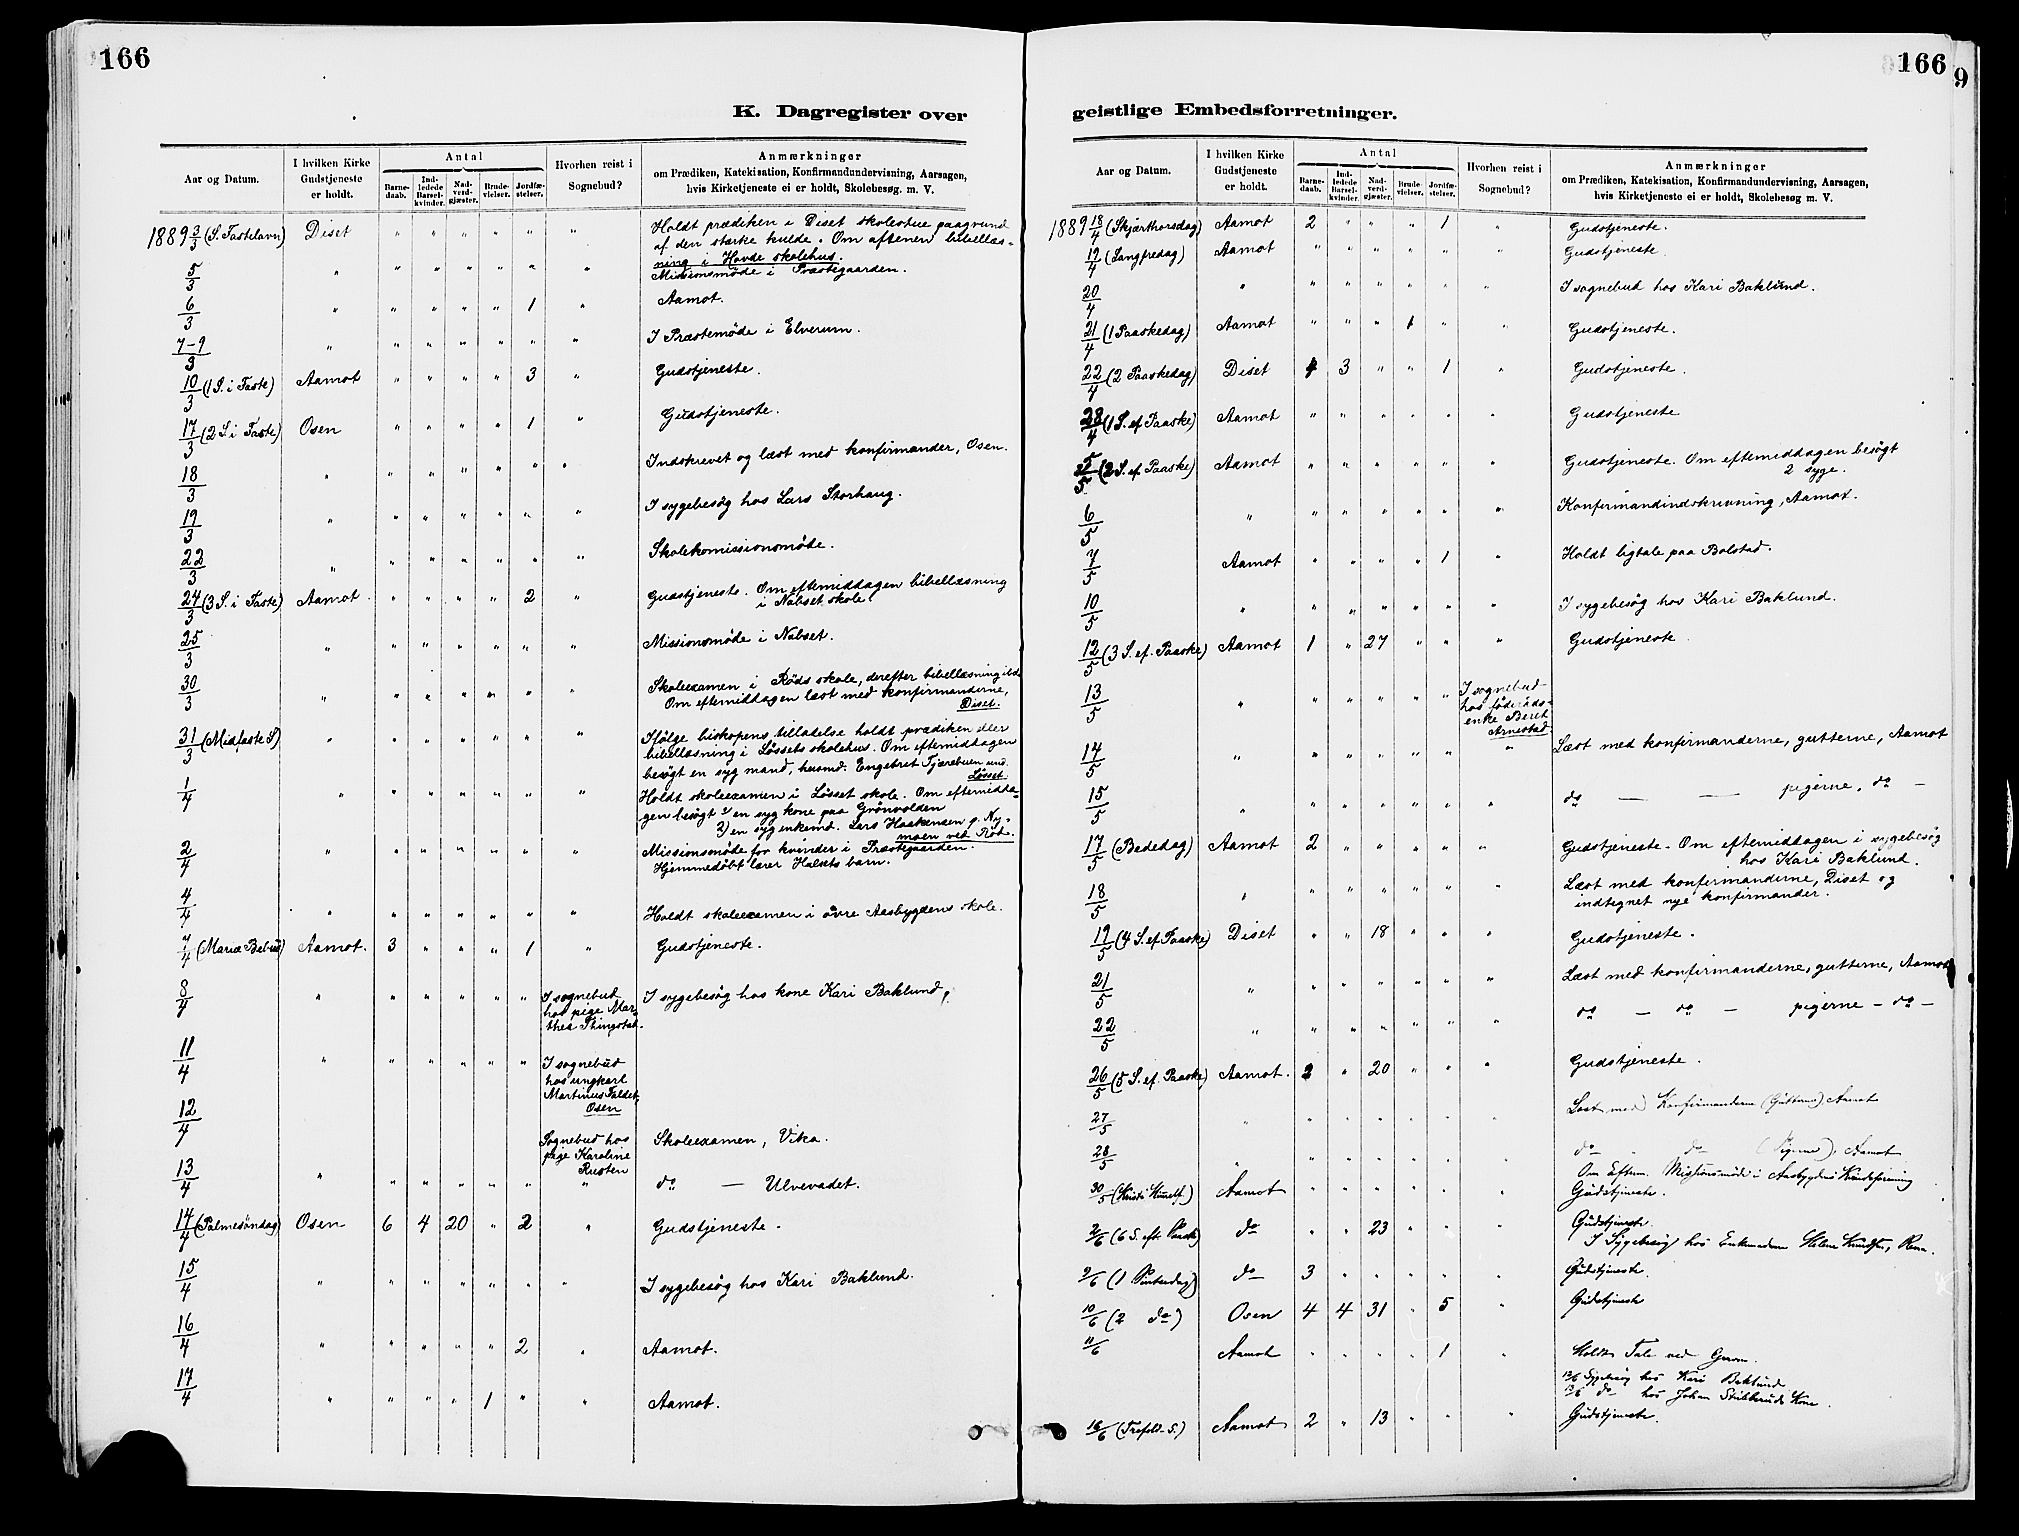 166
K. Dagregister over
Aar og Datum.
I hvilken Kirke Gudstjeneste er holdt.
Antal
Barne-daab.
Ind-ledede Barsel-kvinder.
Nad-verd-gjæster.
Brude-vielser.
Jordfæ-stelser.
Hvorhen reist i Sognebud?
Anmærkninger
om Prædiken, Katekisation, Konfirmandundervisning, Aarsagen,
hvis Kirketjeneste ei er holdt, Skolebesøg. m. V.
1889 3/3 (S. Fastelavn) Diset " " " " " " Holdt prædiken i Diset skolestue paagrund
af den stærke kulde. Om aftenen bibellæs-
ning i Hovde skolehus.
5/3 " " " " " " " Missionsmøde i Præstegaarden.
6/3 " " " " " 1 " Aamot.
7-9/3 " " " " " " " I Præstemøde i Elverum.
10/3 (1 S. i Faste) Aamot " " " " 3 " Gudstjeneste.
17/3 (2 S. i Faste) Osen " " " " 1 " Gudstjeneste.
18/3 " " " " " " " Indskrevet og læst med konfirmander, Osen.
19/3 " " " " " " " I sygebesøg hos Lars Storhaug.
22/3 " " " " " " " Skolekomissionsmøde.
24/3 (3 S. i Faste) Aamot " " " " 2 " Gudstjeneste. Om eftemiddagen bibellæsning
i Nabset skole.
25/3 " " " " " " " Missionsmøde i Nabset.
30/3 " " " " " " " Skoleexamen i Røds skole, derefter bibellæsning
Om eftemiddagen læst med konfirmanderne,
Diset.
31/3 (Midfaste S) " " " " " " " Ifølge biskopens tilladelse holdt prædiken eller
bibellæsning i Løssets skolehus. Om eftemiddagen
besøgt en syg mand, husmd. Engebret Tjærebuen und.
Løsset.
1/4 " " " " " " " Holdt skoleexamen i Løsset skole. Om eftemidda-
gen besøgt 1) en syg kone paa Grønvolden
2) en syg enkemd. Lars Haakensen p. Ny-
moen ved Røt.
2/4 " " " " " " " Missionsmøde for kvinder i Præstegaarden.
Hjemmedøbt lærer Halsets barn.
4/4 " " " " " " " Holdt skoleexamen i øvre Aasbygdens skole.
7/4 (Mariæ Bebud) Aamot. 3 " " " 1 " Gudstjeneste.
8/4 " " " " " " I sognebud I sygebesøg hos kone Kari Baklund.
hos pige Mar-
thea Thingstad.
11/4 " " " " " " I sognebud
hos ungkarl
Martinus Faldet,
Osen
12/4 Sognebud hos Skoleexamen, Vika.
pige Karoline
Rusten
13/4 " " " " " " " do — Ulvevadet.
14/4 (Palmesøndag) Osen 6 4 20 " 2 " Gudstjeneste.
15/4 " " " " " " " I sygebesøg hos Kari Baklund.
16/4 " " " " " 2 " Aamot.
17/4 " " " " 1 " " Aamot.
166
9
geistlige Embedsforretninger.
Aar og Datum.
I hvilken Kirke Gudstjeneste er holdt.
Antal
Barne-daab.
Ind-ledede Barsel-kvinder.
Nad-verd-gjæster.
Brude-vielser.
Jordfæ-stelser.
Hvorhen reist i Sognebud?
Anmærkninger
om Prædiken, Katekisation, Konfirmandundervisning, Aarsagen,
hvis Kirketjeneste ei er holdt, Skolebesøg m. V.
1889 18/4 (Skjærthorsdag) Aamot 2 " " " 1 " Gudstjeneste.
19/4 (Langfredag) Aamot " " " " " " Gudstjeneste.
20/4 " " " " " " " I sognebud hos Kari Baklund.
21/4 (1 Paaskedag) Aamot " " " 1 " " Gudstjeneste.
22/4 (2 Paaskedag) Diset 4 3 " " 1 " Gudstjeneste.
28/4 (1 S. ef Paaske) Aamot " " " " " " Gudstjeneste
5/5 (2 S. ef Paaske) Aamot " " " " " " Gudstjeneste. Om eftemiddagen besøgt
2 syge.
6/5 " " " " " " " Konfirmandindskrivning, Aamot.
7/5 Aamot " " " " 1 " Holdt ligtale paa Bolstad.
10/5 " " " " " " " I sygebesøg hos Kari Baklund.
12/5 (3 S. ef. Paaske) Aamot 1 " 27 " " " Gudstjeneste.
13/5 " " " " " " I sognebud
hos føderåds-
enke Beret
Arnestad.
14/5 " " " " " " " Læst med konfirmanderne, gutterne, Aamot
15/5 " " " " " " " do — — pigerne, do —
17/5 (Bededag) Aamot 2 " " " " " Gudstjeneste. Om eftemiddagen i sygebesøg
hos Kari Baklund.
18/5 " " " " " " " Læst med konfirmanderne, Diset og
indtegnet nye konfirmander.
19/5 (4 S. ef Paaske) Diset " " 18 " " " Gudstjeneste.
21/5 " " " " " " " Læst med konfirmanderne, gutterne, Aamot
22/5 " " " " " " " do — do — pigerne — do —
26/5 (5 S. ef. Paaske) Aamot. 2 " 20 " " " Gudstjeneste.
27/5 " " " " " " " Læst med Konfirmanderne (Gutterne) Aamot
28/5 " " " " " " " do " do (Pigerne), Aamot
Om Efterm. Missionsmøde i Aasbygdens Kvindeforening
30/5 (Kristi Himelf.) Aamot " " " " " " Gudstjeneste.
2/6 (6 S. eft. Paaske) do " " 23 " " " Gudstjeneste.
I Sygebesøg hos Enkemadam Helene Knudsen, Rena.
9/6 (1 Pintsedag) do 3 " " " " " Gudstjeneste.
10/6 (2 do) Osen 4 4 31 " 5 " Gudstjeneste
11/6 Aamot " " " " 1 " Holdt Tale ved Graven.
12/6 Sygebesøg hos Kari Baklund
13/6 do hos Johan Stubberuds Kone.
16/6 (Trefold. S.) Aamot 2 " 13 " " " Gudstjeneste.